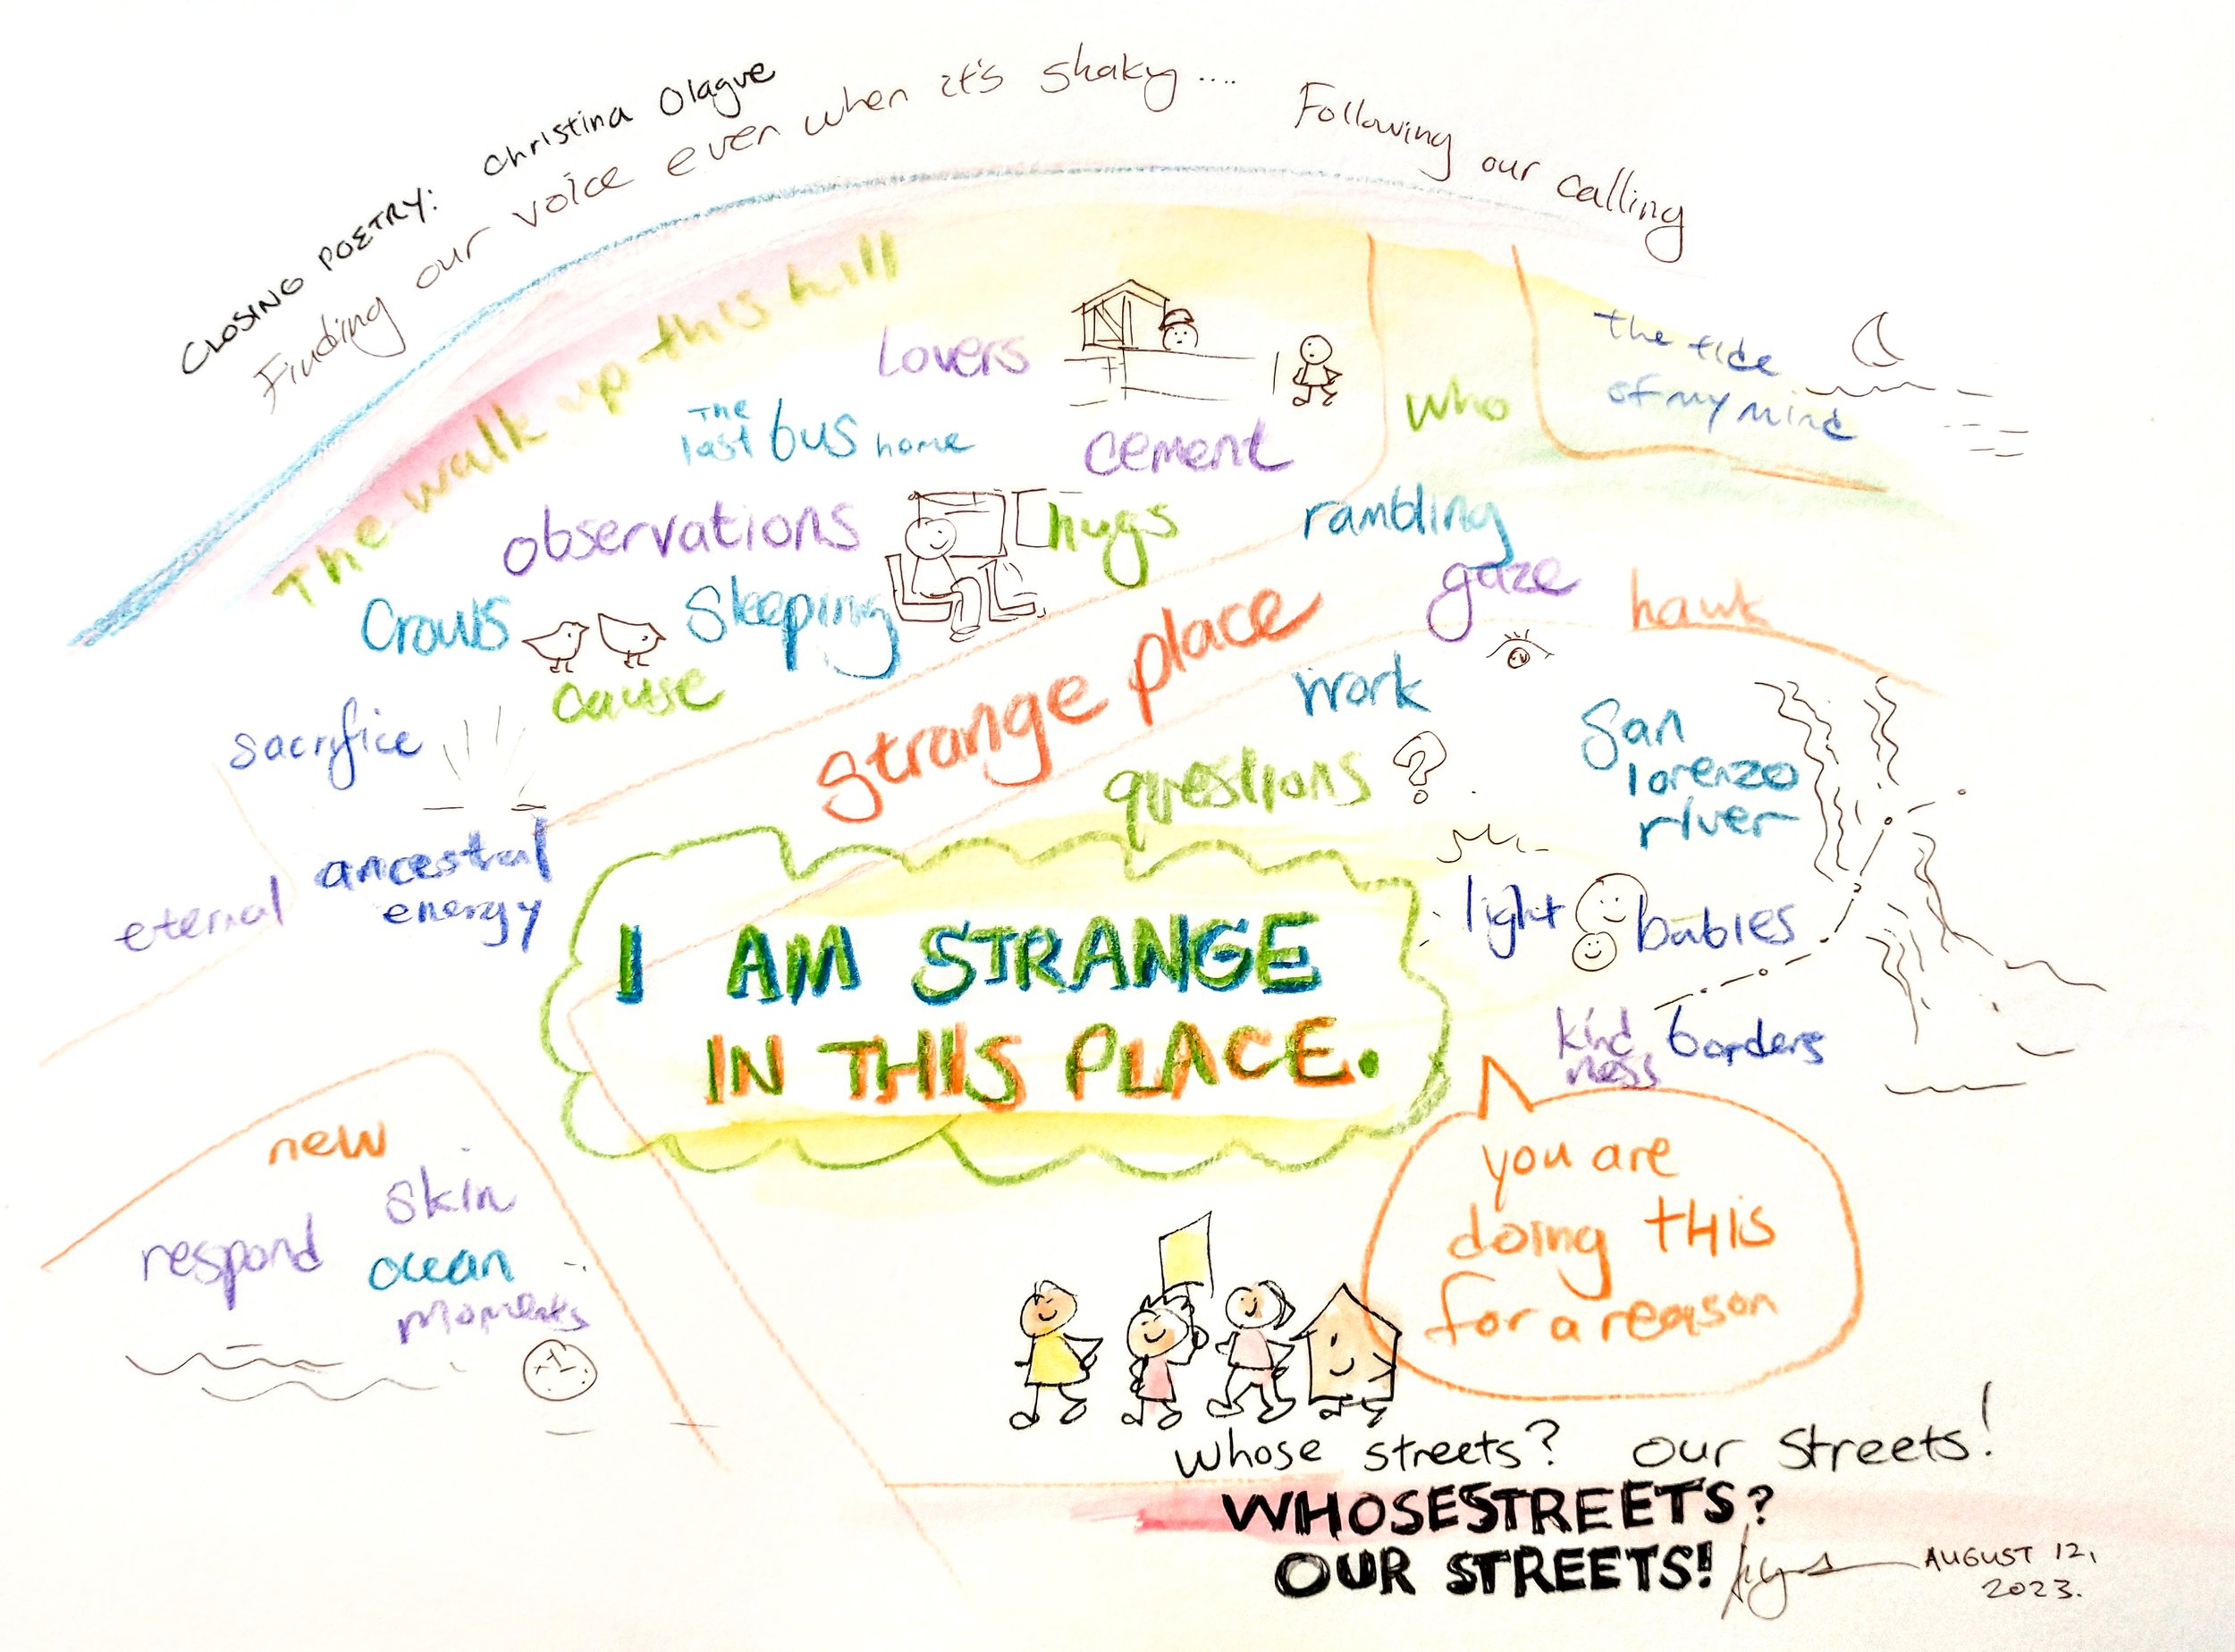 CLOSING POETRY: Christina Olague
Finding our voice even when it's shaky.... Following our calling
The walk up this hill
Lovers
The
last bus home
cement
who
the tide
of my mind
observations
hugs
rambling
gaze
hawk
Crows
Sleeping
cause
strange place
work
San
lorenzo
river
sacrifice
questions ?
ancestral
energy
eternal
I AM STRANGE
IN THIS PLACE.
light
babies
kind
ness
borders
new
skin
respond
ocean
moments
you are
doing this
for a reason
Whose streets? Our Streets!
WHOSESTREETS?
OUR STREETS!
AUGUST 12,
2023.